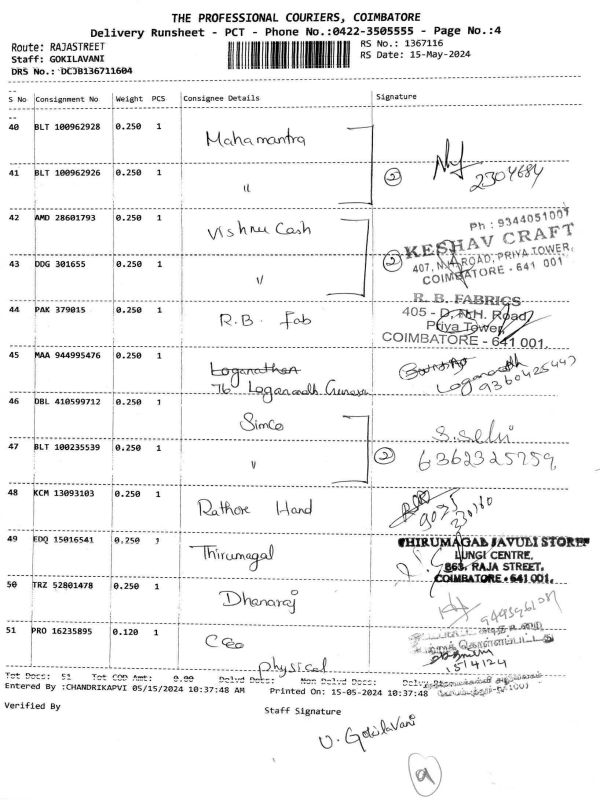 THE PROFESSIONAL COURIERS, COIMBATORE
Delivery Runsheet - PCT - Phone No.:0422-3505555 - Page No.:4
Route: RAJASTREET
RS No.: 1367116
Staff: GOKILAVANI
RS Date: 15-May-2024
DRS No.: DCJB136711604
S No Consignment No Weight PCS Consignee Details Signature
40 BLT 100962928 0.250 1 Mahamantra
41 BLT 100962926 0.250 1 " ② 2304684
42 AMD 28601793 0.250 1 Vishnu Cash
Ph : 9344051007
KESHAV CRAFT
43 DDG 301655 0.250 1 " ② 407, N.H ROAD, PRIYA TOWER,
COIMBATORE - 641 001
R. B. FABRICS
44 PAK 379015 0.250 1 R.B. Fab 405 - D, N.H. Road,
Priya Tower,
COIMBATORE - 641 001.
45 MAA 944995476 0.250 1 Loganathan
76 Loganadh
Loganadh
9360425447
46 DBL 410599712 0.250 1 Simco S. Selvi
47 BLT 100235539 0.250 1 " ② 6362325759
48 KCM 13093103 0.250 1 Rathore Hand 9035
230160
49 EDQ 15016541 0.250 1 Thirumagal THIRUMAGAL JAVULI STORES
LUNGI CENTRE,
863, RAJA STREET,
COIMBATORE - 641 001.
50 TRZ 52801478 0.250 1 Dhanaraj
51 PRO 16235895 0.120 1 CEO
Physical
15/4/24
Tot Docs: 51 Tot COD Amt: 0.00 Delvd Docs: Non Delvd Docs:
Entered By :CHANDRIKAPVI 05/15/2024 10:37:48 AM Printed On: 15-05-2024 10:37:48
Verified By
Staff Signature
V. Gokilavani